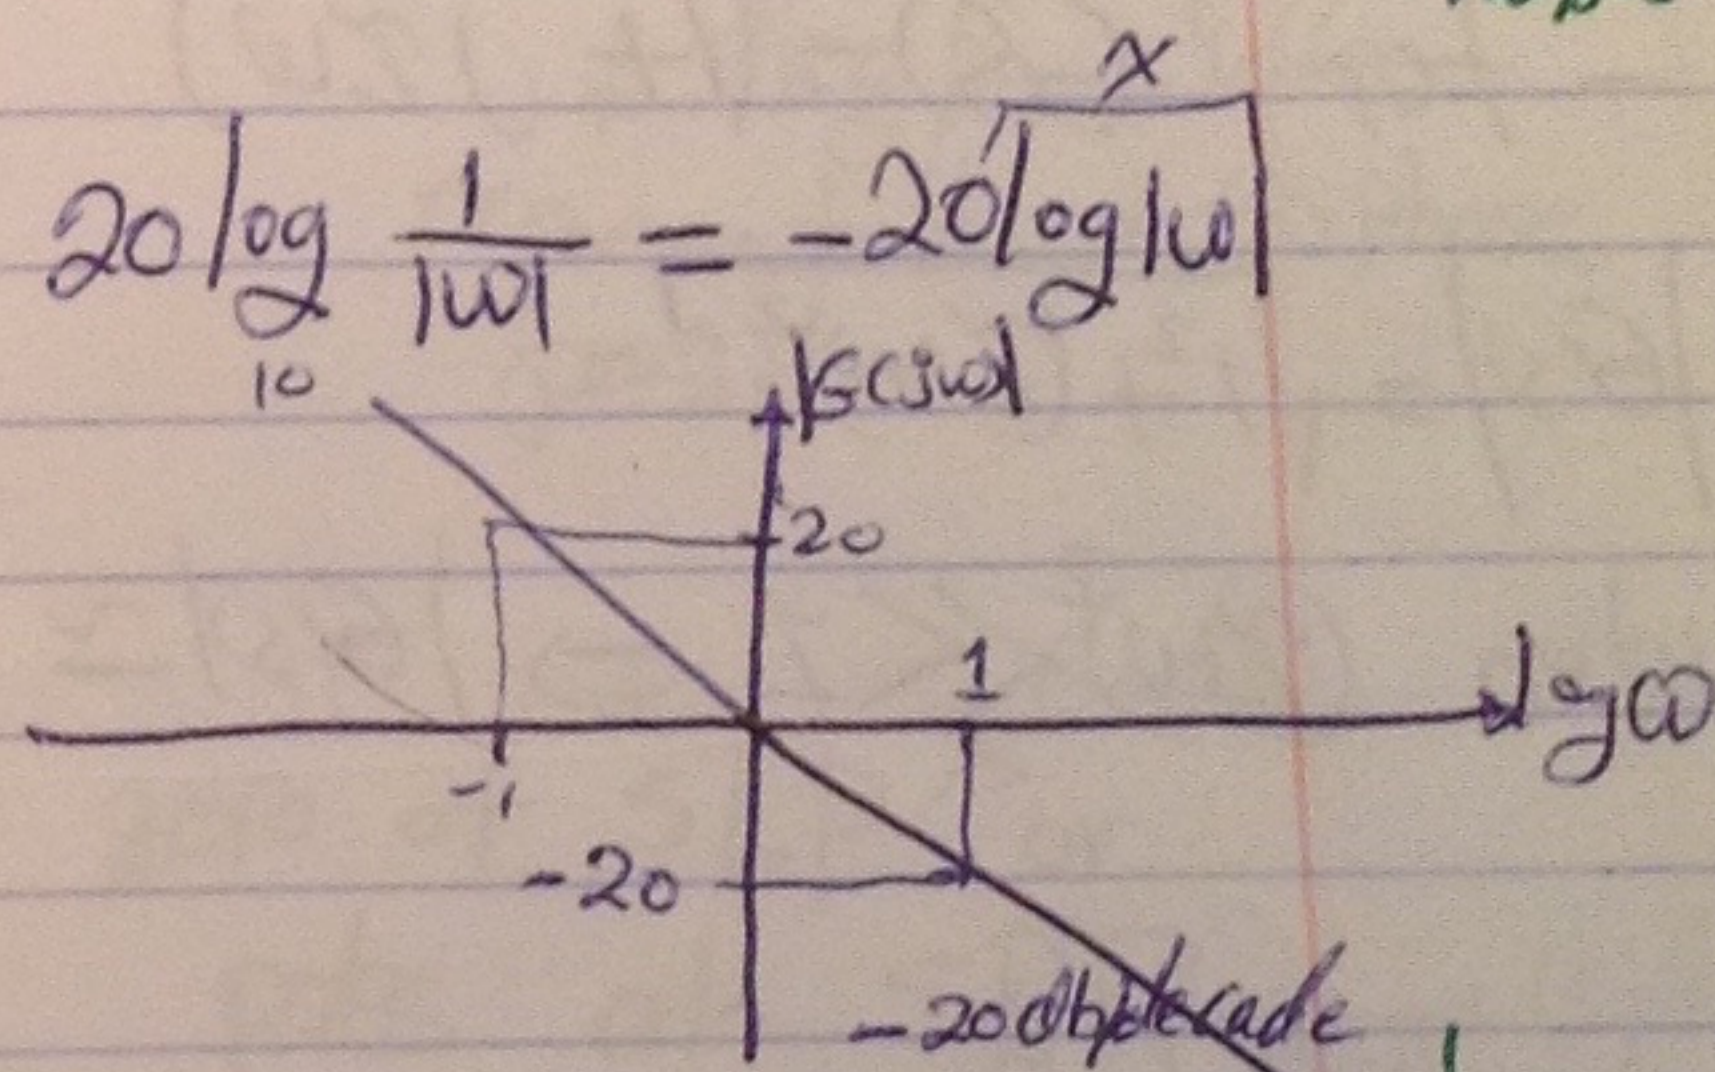 x
20 log₁₀ 1/|ω| = -20 log |ω|
|G(jω)|
20
1
log ω
-1
-20
-20 db/decade